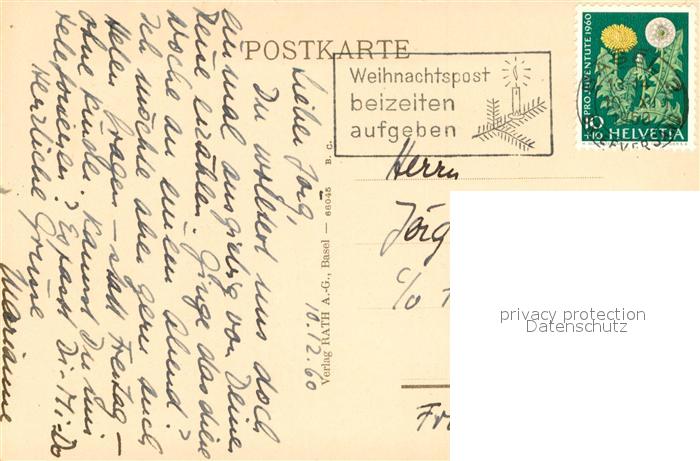 POSTKARTE
Weihnachtspost
beizeiten
aufgeben
PRO JUVENTUTE 1960
10
+10
HELVETIA
Lieber Jörg,
Du wolltest uns doch
einmal ausgiebig von Deiner
Reise erzählen. Ginge das diese
Woche an einem Abend?
Ich möchte aber gern auch
Helen fragen – statt Freitag –
ohne Kinder. Kannst Du mir
telefonieren? Es passt Di-Mi-Do
Herzliche Grüsse
Marianne
10.12.60
Verlag RATH A.-G., Basel — 66045 B. c.
Herrn
Jörg
c/o
Fr
privacy protection
Datenschutz